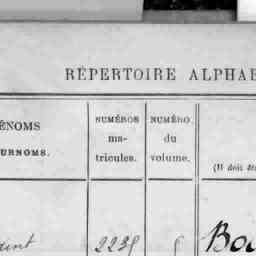 RÉPERTOIRE ALPHAB
ÉNOMS
URNOMS.
NUMÉROS
ma-
tricules.
NUMÉRO
du
volume.
(Il doit êt
2235
Bou